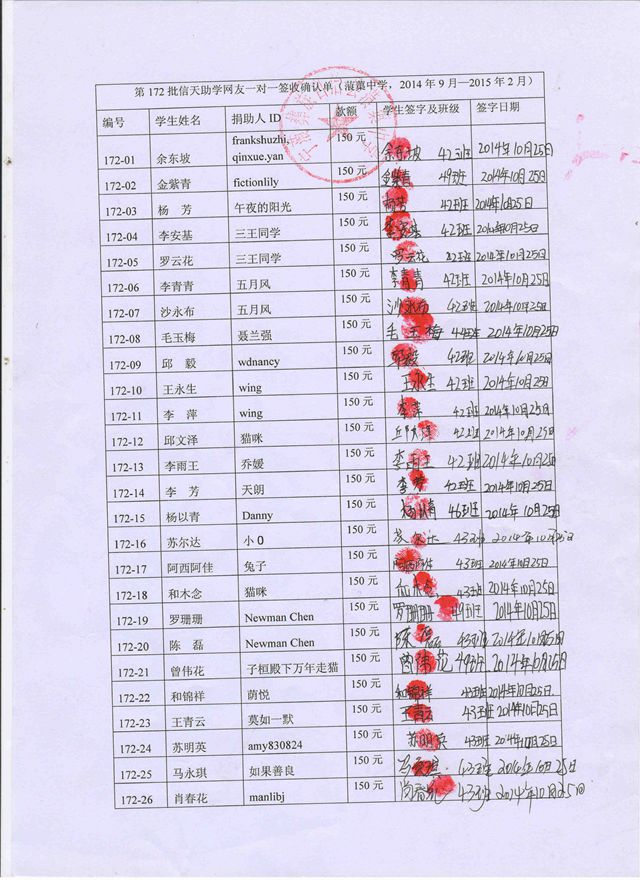 第 172 批信天助学网友一对一签收确认单（蒗蕖中学，2014 年 9 月—2015 年 2 月）
编号 学生姓名 捐助人 ID 款额 学生签字及班级 签字日期
172-01 余东坡 frankshuzhi, qinxue.yan 150 元 余东坡 42班 2014年10月25日
172-02 金紫青 fictionlily 150 元 金紫青 49班 2014年10月25日
172-03 杨 芳 午夜的阳光 150 元 杨芳 42班 2014年10月25日
172-04 李安基 三王同学 150 元 李安基 42班 2014年10月25日
172-05 罗云花 三王同学 150 元 罗云花 42班 2014年10月25日
172-06 李青青 五月风 150 元 李青青 42班 2014年10月25日
172-07 沙永布 五月风 150 元 沙永布 42班 2014年10月25日
172-08 毛玉梅 聂兰强 150 元 毛玉梅 44班 2014年10月25日
172-09 邱 毅 wdnancy 150 元 邱毅 42班 2014年10月25日
172-10 王永生 wing 150 元 王永生 42班 2014年10月25日
172-11 李 萍 wing 150 元 李萍 42班 2014年10月25日
172-12 邱文泽 猫咪 150 元 42班 2014年10月25日
172-13 李雨王 乔媛 150 元 李雨王 42班 2014年10月25日
172-14 李 芳 天朗 150 元 李芳 42班 2014年10月25日
172-15 杨以青 Danny 150 元 杨以青 46班 2014年10月25日
172-16 苏尔达 小 0 150 元 苏尔达 43班 2014年10月25日
172-17 阿西阿佳 兔子 150 元 43班 2014年10月25日
172-18 和木念 猫咪 150 元 和木念 43班 2014年10月25日
172-19 罗珊珊 Newman Chen 150 元 罗珊珊 49班 2014年10月25日
172-20 陈 磊 Newman Chen 150 元 陈磊 43班 2014年10月25日
172-21 曾伟花 子桓殿下万年走猫 150 元 曾伟花 49班 2014年10月25日
172-22 和锦祥 萌悦 150 元 和锦祥 43班 2014年10月25日
172-23 王青云 莫如一默 150 元 王青云 43班 2014年10月25日
172-24 苏明英 amy830824 150 元 苏明英 43班 2014年10月25日
172-25 马永琪 如果善良 150 元 马永琪 43班 2014年10月25日
172-26 肖春花 manlibj 150 元 43班 2014年10月25日